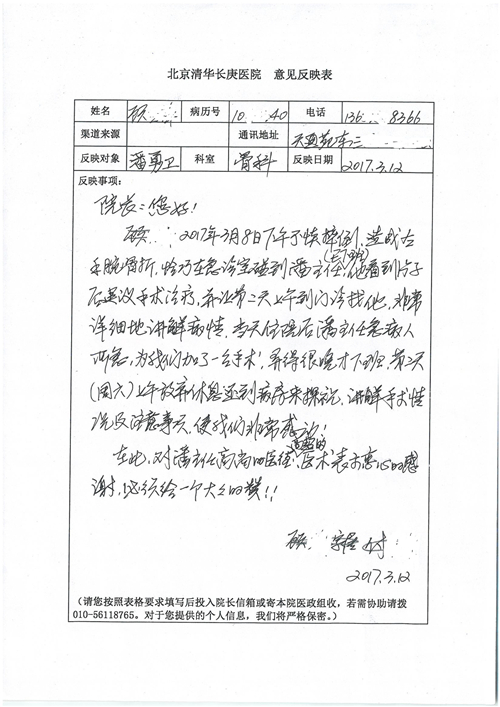 北京清华长庚医院 意见反映表
姓名 顾 病历号 10 40 电话 136 8366
渠道来源 通讯地址 天通苑东三
反映对象 潘勇卫 科室 骨科 反映日期 2017.3.12
反映事项：
院长：您好！
顾 2017年3月8日下午不慎摔倒，造成右
手腕骨折，恰巧在急诊室碰到潘主任(已下班)，他看到片子
后建议手术治疗，并让第二天上午到门诊找他，非常
详细地讲解病情，当天住院后潘主任急病人
所急，为我们加了一台手术，弄得很晚才下班，第二天
(周六)上午放弃休息还到病房来探视，讲解手术情
况及注意事项，使我们非常感动！
在此，对潘主任高尚的医德、高超的医术表示衷心的感
谢，必须给一个大大的赞！！
顾
2017.3.12
(请您按照表格要求填写后投入院长信箱或寄本院医政组收，若需协助请拨
010-56118765。对于您提供的个人信息，我们将严格保密。)